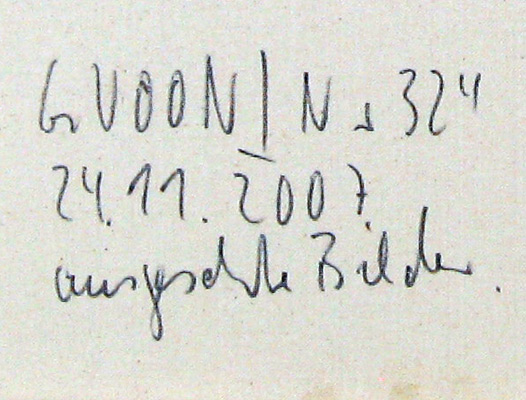 GVOON | Nr 324
24.11.2007
Bilder.